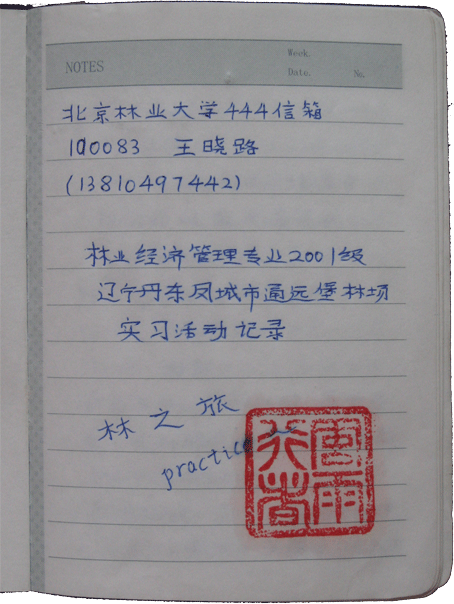 NOTES
Week.
Date. No.
北京林业大学444信箱
100083 王晓路
(13810497442)
林业经济管理专业2001级
辽宁丹东凤城市通远堡林场
实习活动记录
林之旅
practice